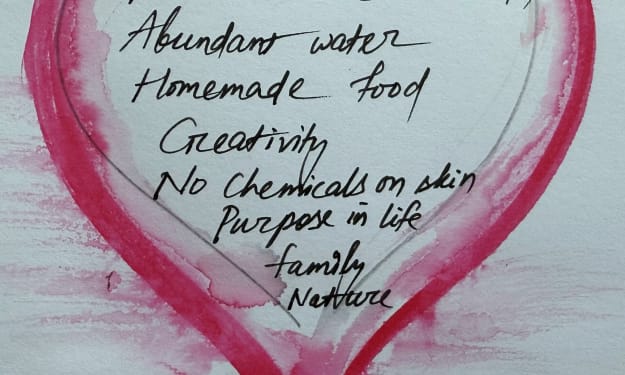 Abundant water
Homemade food
Creativity
No Chemicals on skin
Purpose in life
family
Nature